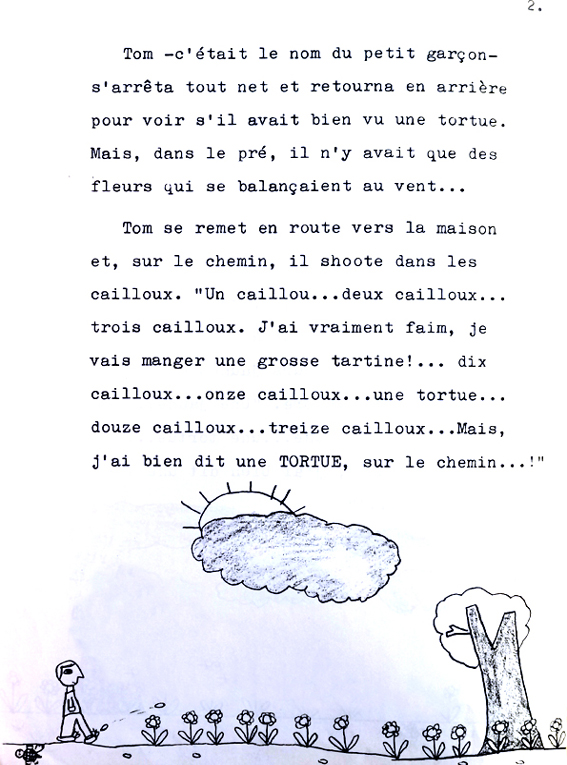 2.
Tom -c'était le nom du petit garçon-
s'arrêta tout net et retourna en arrière
pour voir s'il avait bien vu une tortue.
Mais, dans le pré, il n'y avait que des
fleurs qui se balançaient au vent...
Tom se remet en route vers la maison
et, sur le chemin, il shoote dans les
cailloux. "Un caillou...deux cailloux...
trois cailloux. J'ai vraiment faim, je
vais manger une grosse tartine!... dix
cailloux...onze cailloux...une tortue...
douze cailloux...treize cailloux...Mais,
j'ai bien dit une TORTUE, sur le chemin...!"